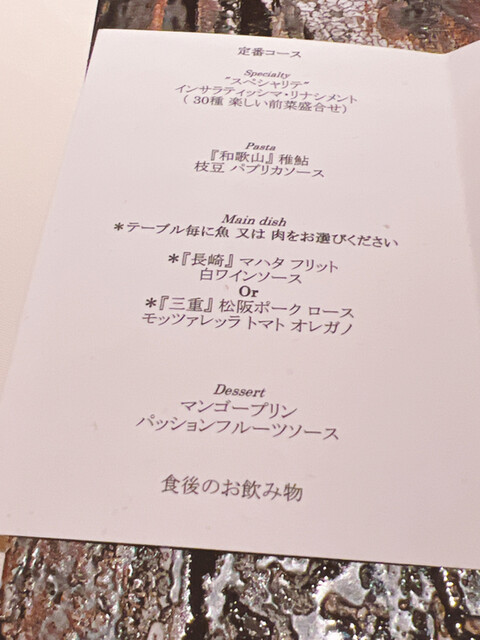 定番コース
Specialty
"スペシャリテ"
インサラティッシマ・リナシメント
( 30種 楽しい前菜盛合せ)
Pasta
『和歌山』稚鮎
枝豆 パプリカソース
Main dish
＊テーブル毎に魚 又は 肉をお選びください
＊『長崎』マハタ フリット
白ワインソース
Or
＊『三重』松阪ポーク ロース
モッツァレッラ トマト オレガノ
Dessert
マンゴープリン
パッションフルーツソース
食後のお飲み物